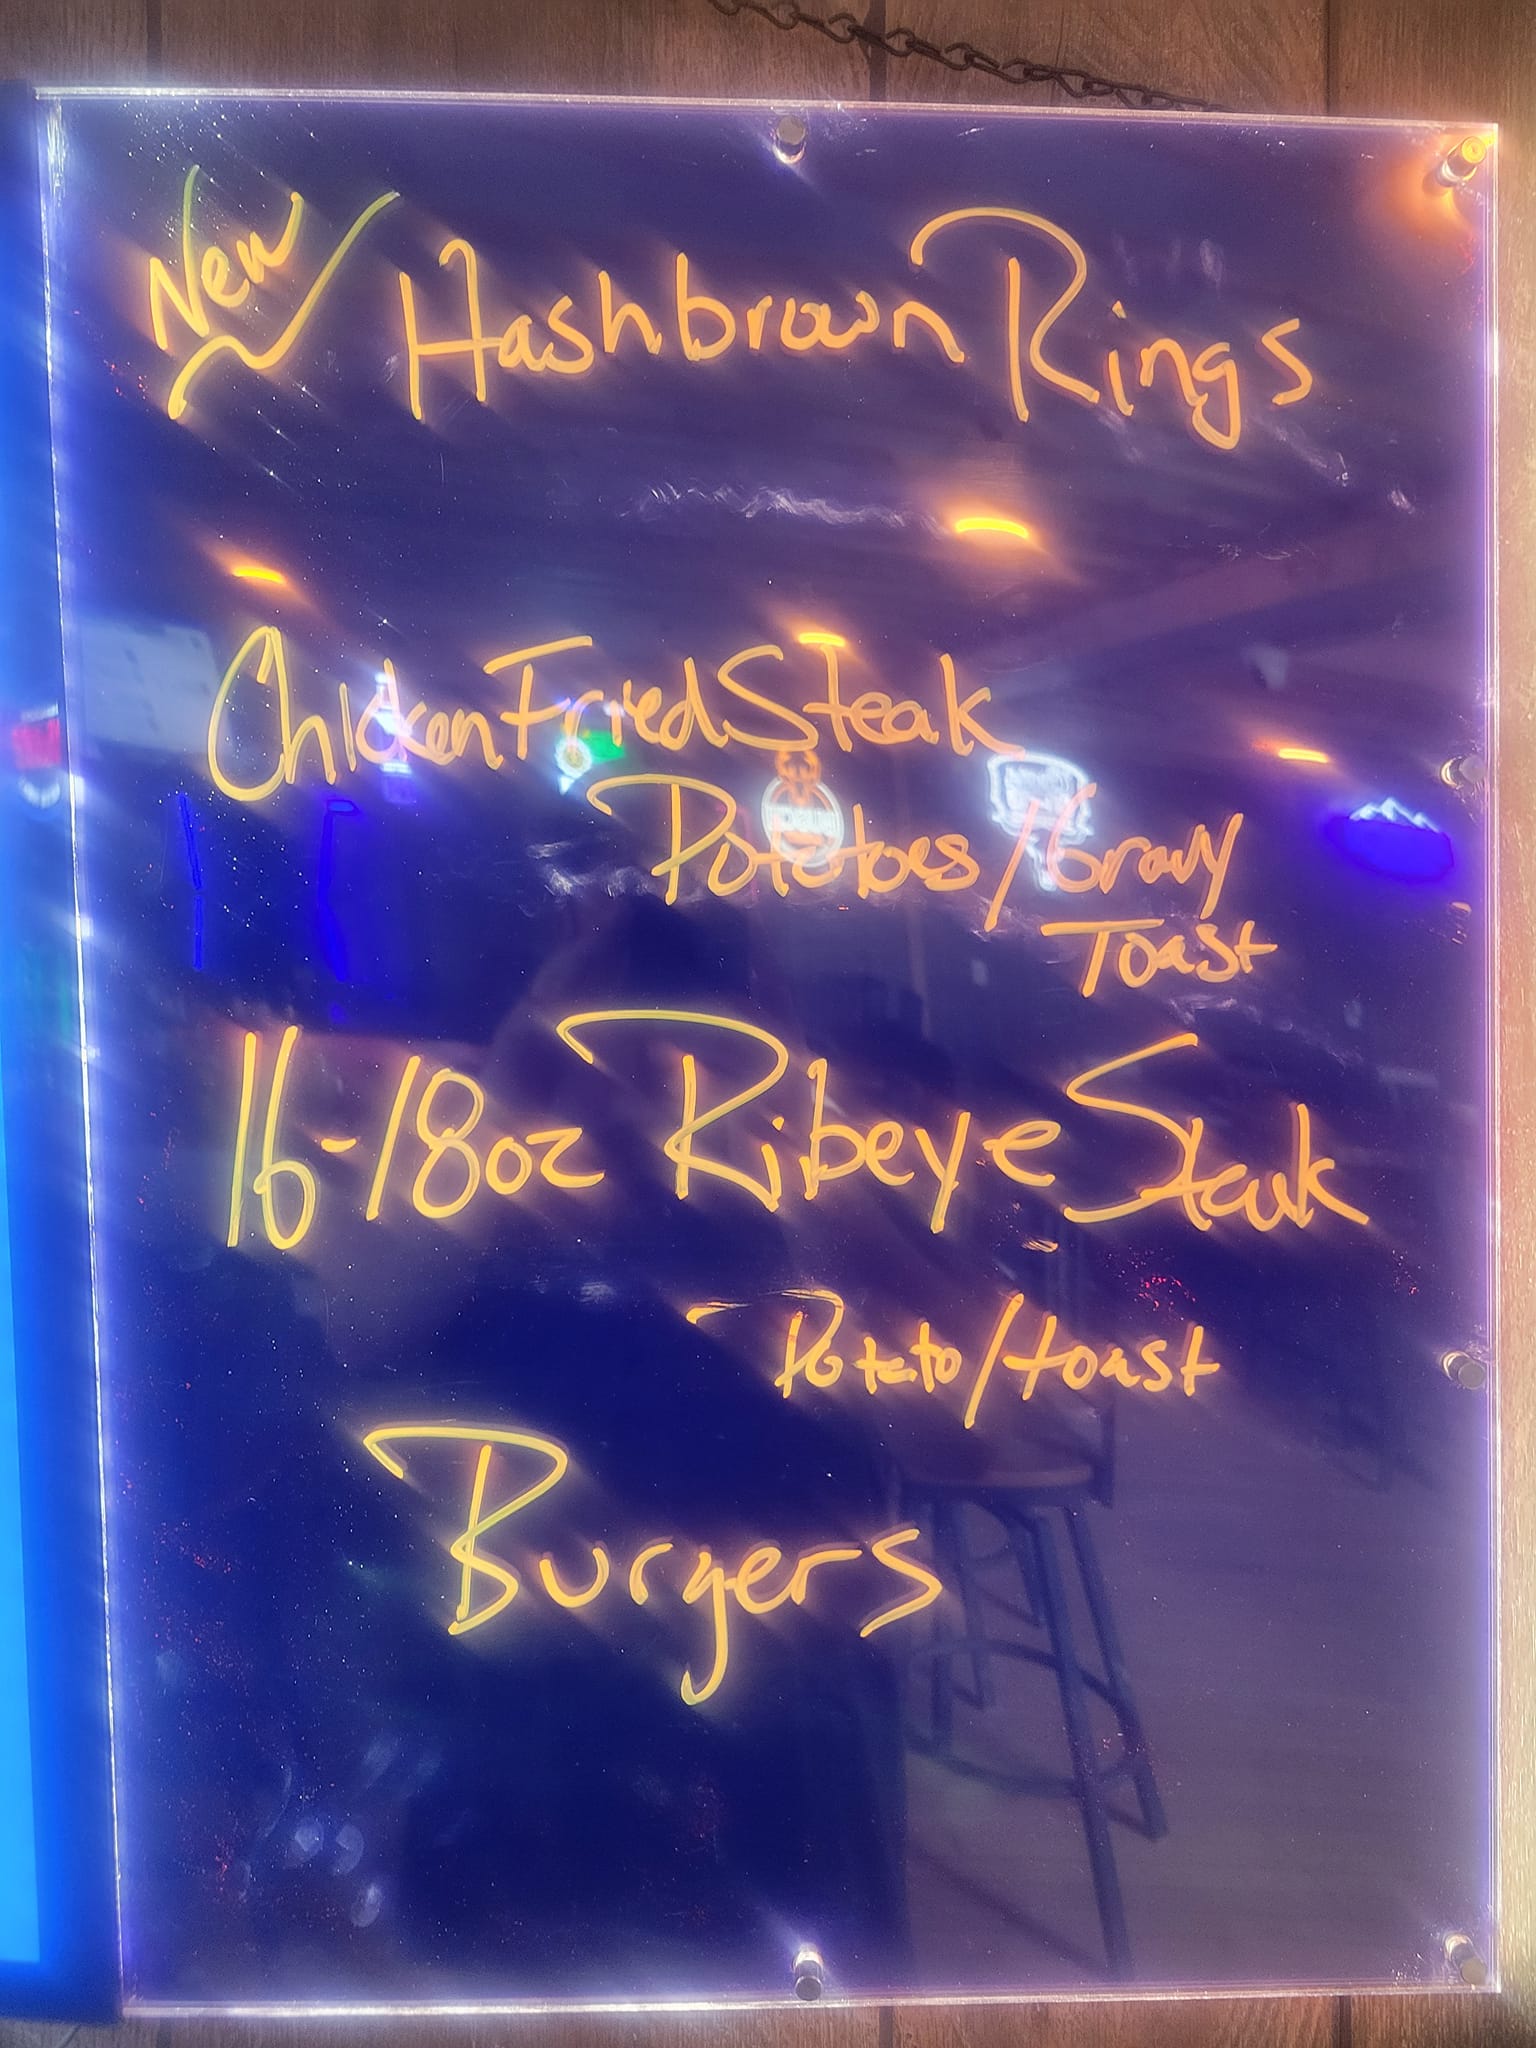 New Hashbrown Rings
Chicken Fried Steak
Potatoes/Gravy
Toast
16-18oz Ribeye Steak
Potato/toast
Burgers